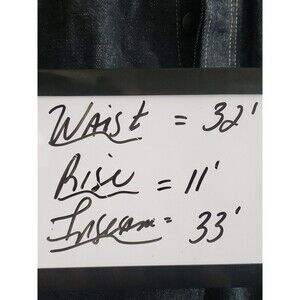 Waist = 32'
Rise = 11'
Inseam = 33'